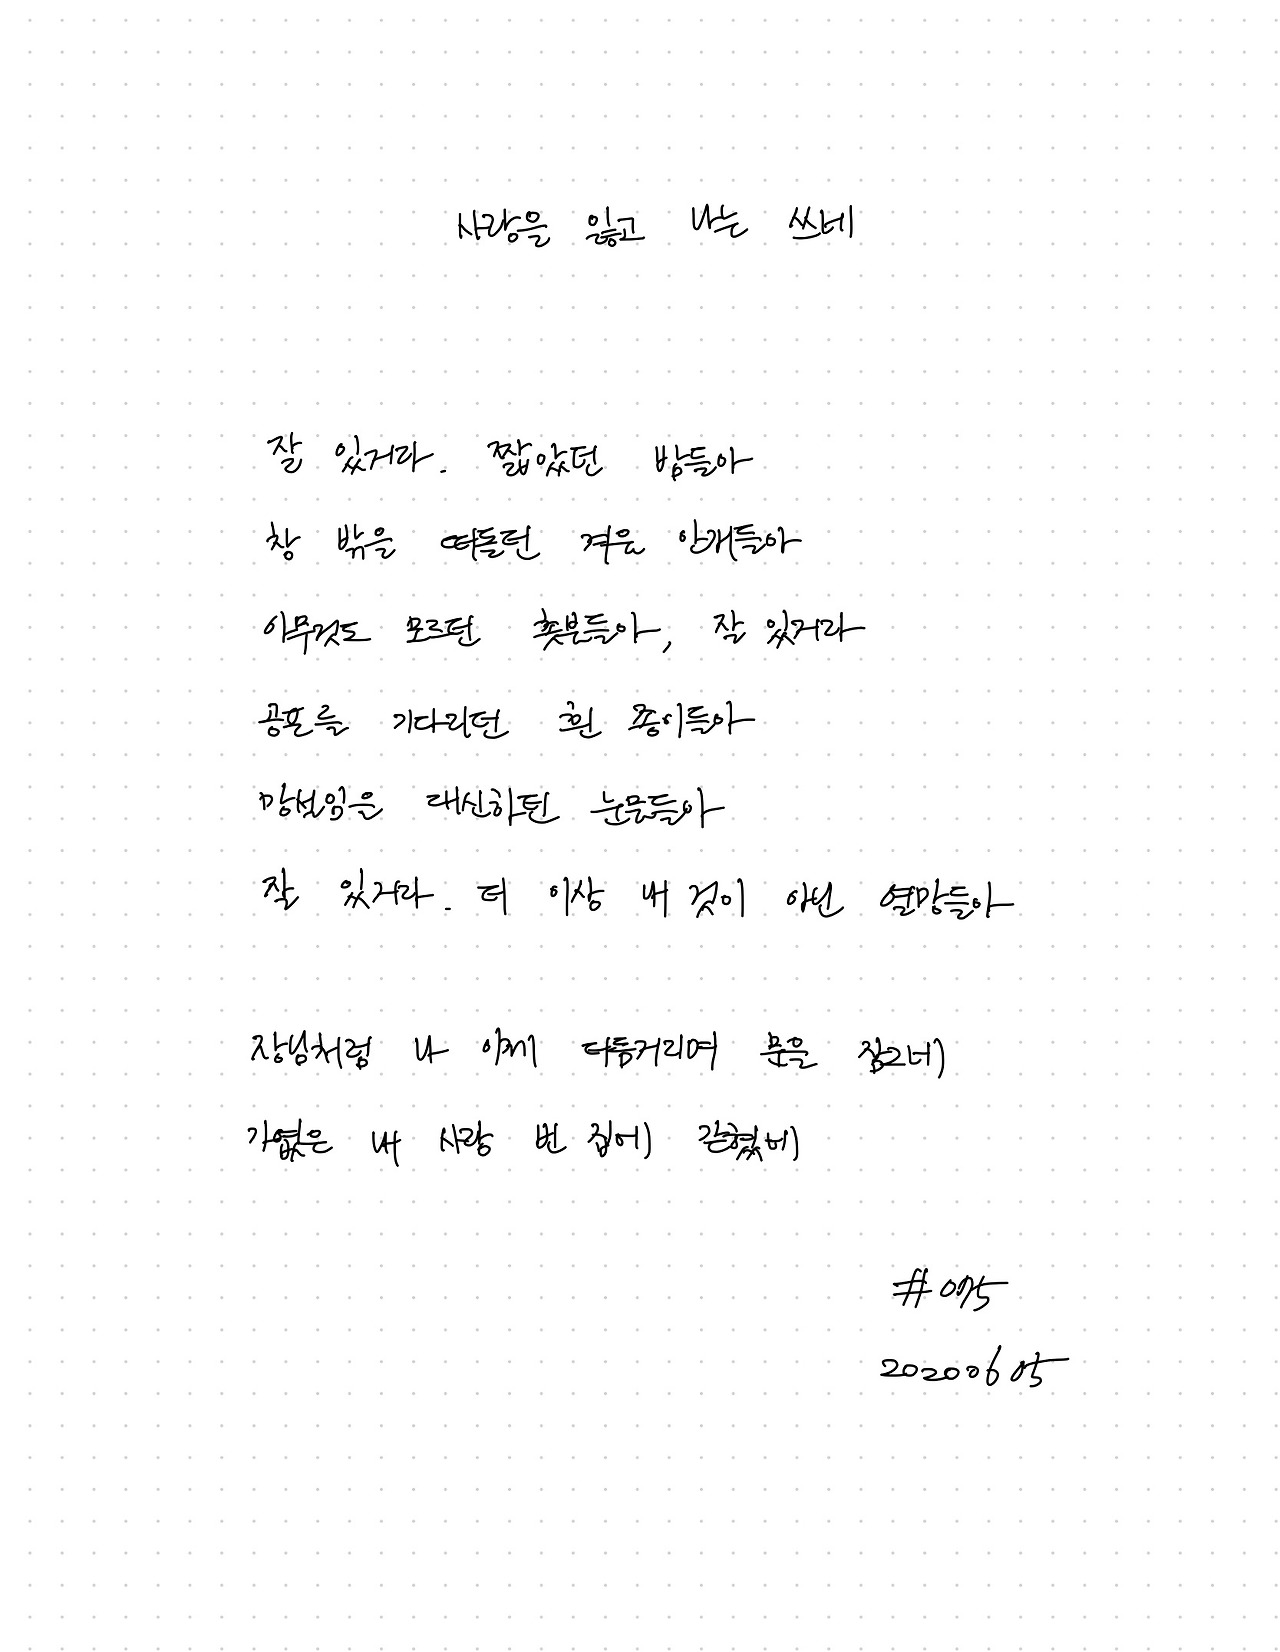 사랑을 잃고 나는 쓰네
잘 있거라. 짧았던 밤들아
창 밖을 떠돌던 겨울 안개들아
아무것도 모르던 촛불들아, 잘 있거라
공포를 기다리던 흰 종이들아
망설임은 대신하던 눈물들아
잘 있거라. 더 이상 내 것이 아닌 열망들아
장님처럼 나 이제 더듬거리며 문을 잠그네
가엾은 내 사랑 빈 집에 갇혔네
#075
20200605